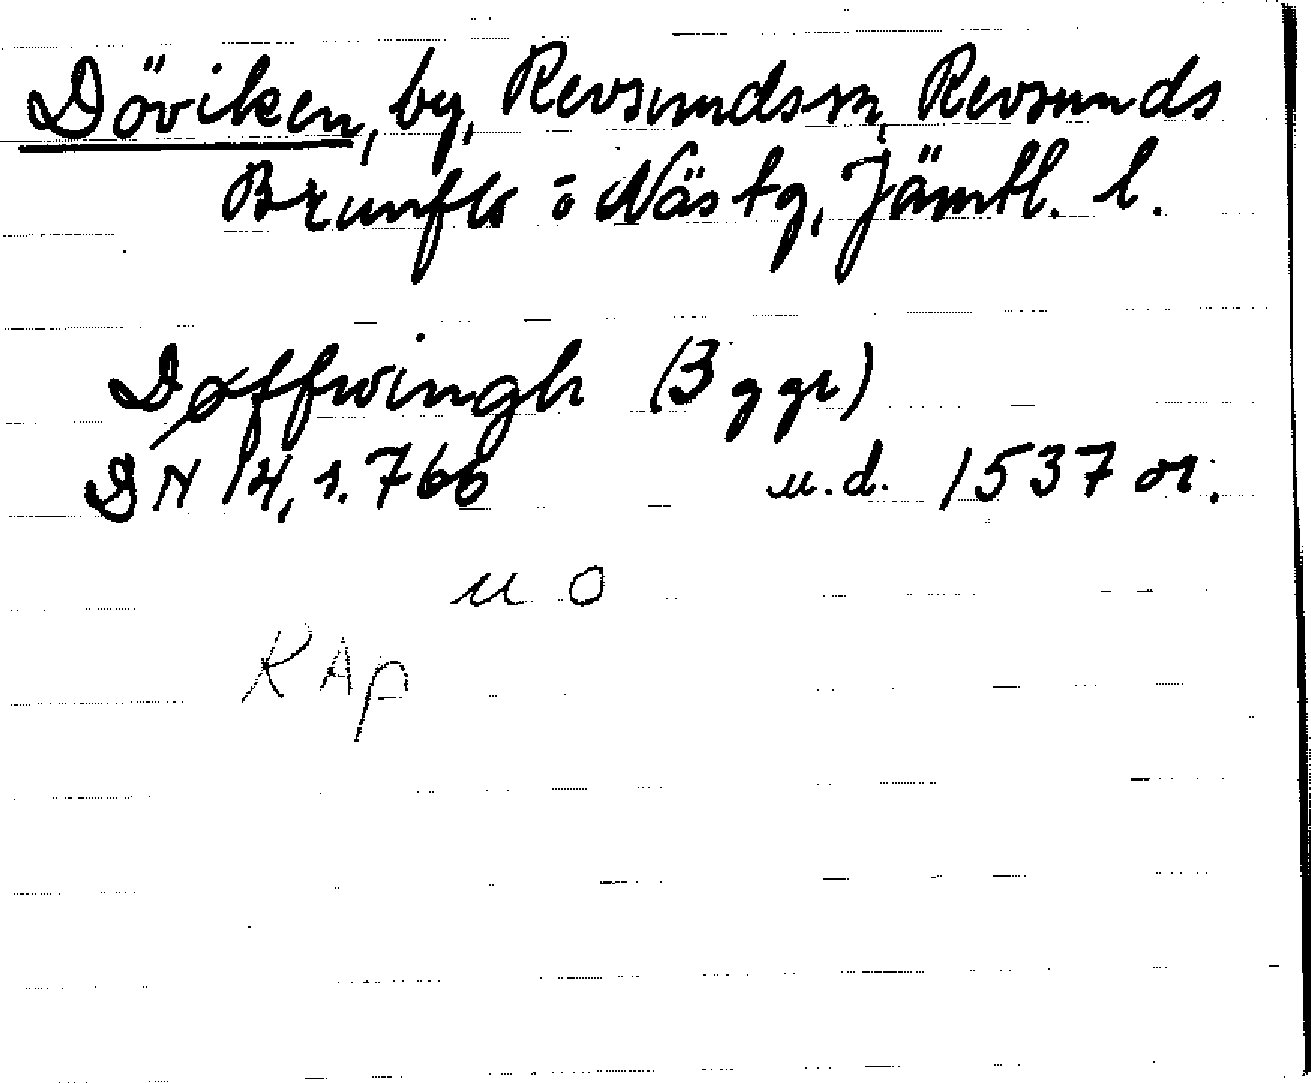 Döviken, by, Revsunds sn, Revsunds
Brunflo o Näs tg, Jämtl. l.
Døffwingh (3 ggr)
DN 14, s. 766 u.d. 1537 or.
u o
KAP